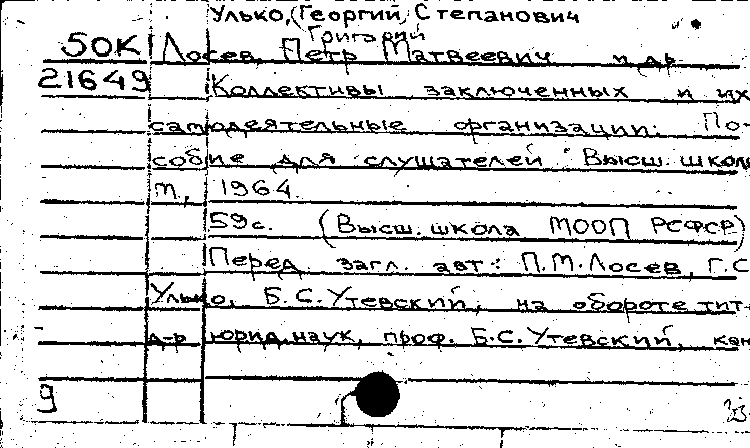 Улько, (Георгий) Степанович
Григорий
50К Лосев, Петр Матвеевич и др.
21649 Коллективы заключенных и их
самодеятельные организации. По-
собие для слушателей Высш. школ
м., 1964.
59с. (Высш. школа МООП РСФСР)
Перед загл. авт.: П.М. Лосев, Г.С
Улько, Б.С. Утевский, на обороте тит.
д-р юрид. наук, проф. Б.С. Утевский, кан
9